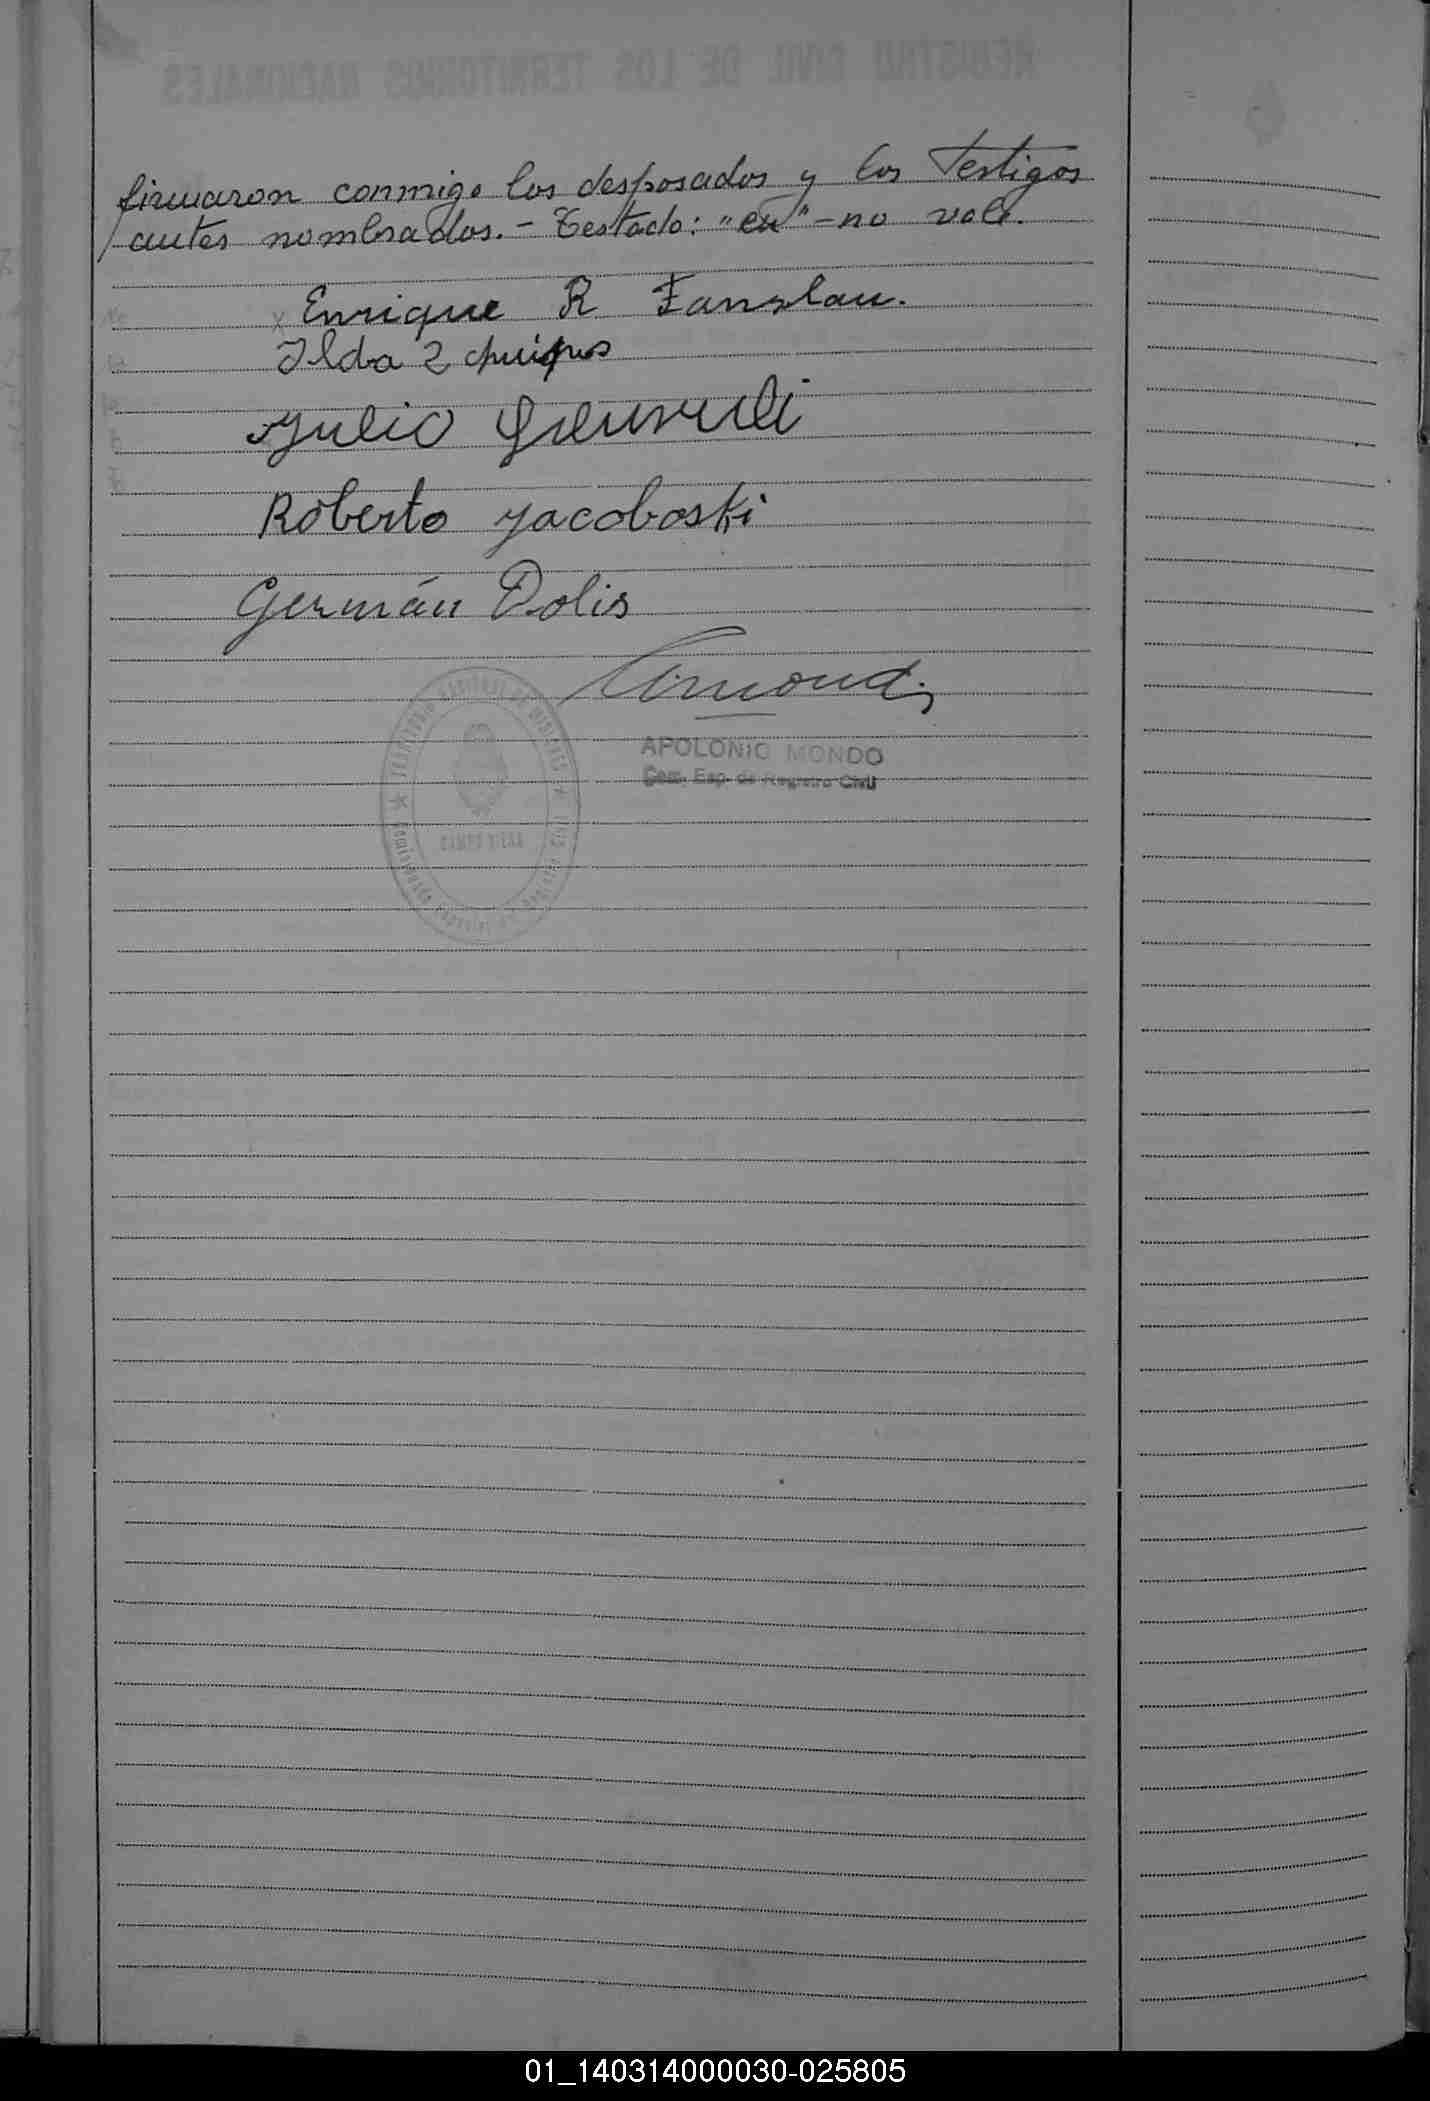 firmaron conmigo los desposados y los Testigos
antes nombrados. - Testado: "en" - no vale.
Enrique R Fanslau.
Ilda
Julio
Roberto Yacoboski
Germán Dolis
APOLONIO MONDO
Com. Esp. de Registro Civil
TERRITORIO NACIONAL DE MISIONES
CAMPO VIERA
Comisionado Especial de Registro Civil
01_140314000030-025805